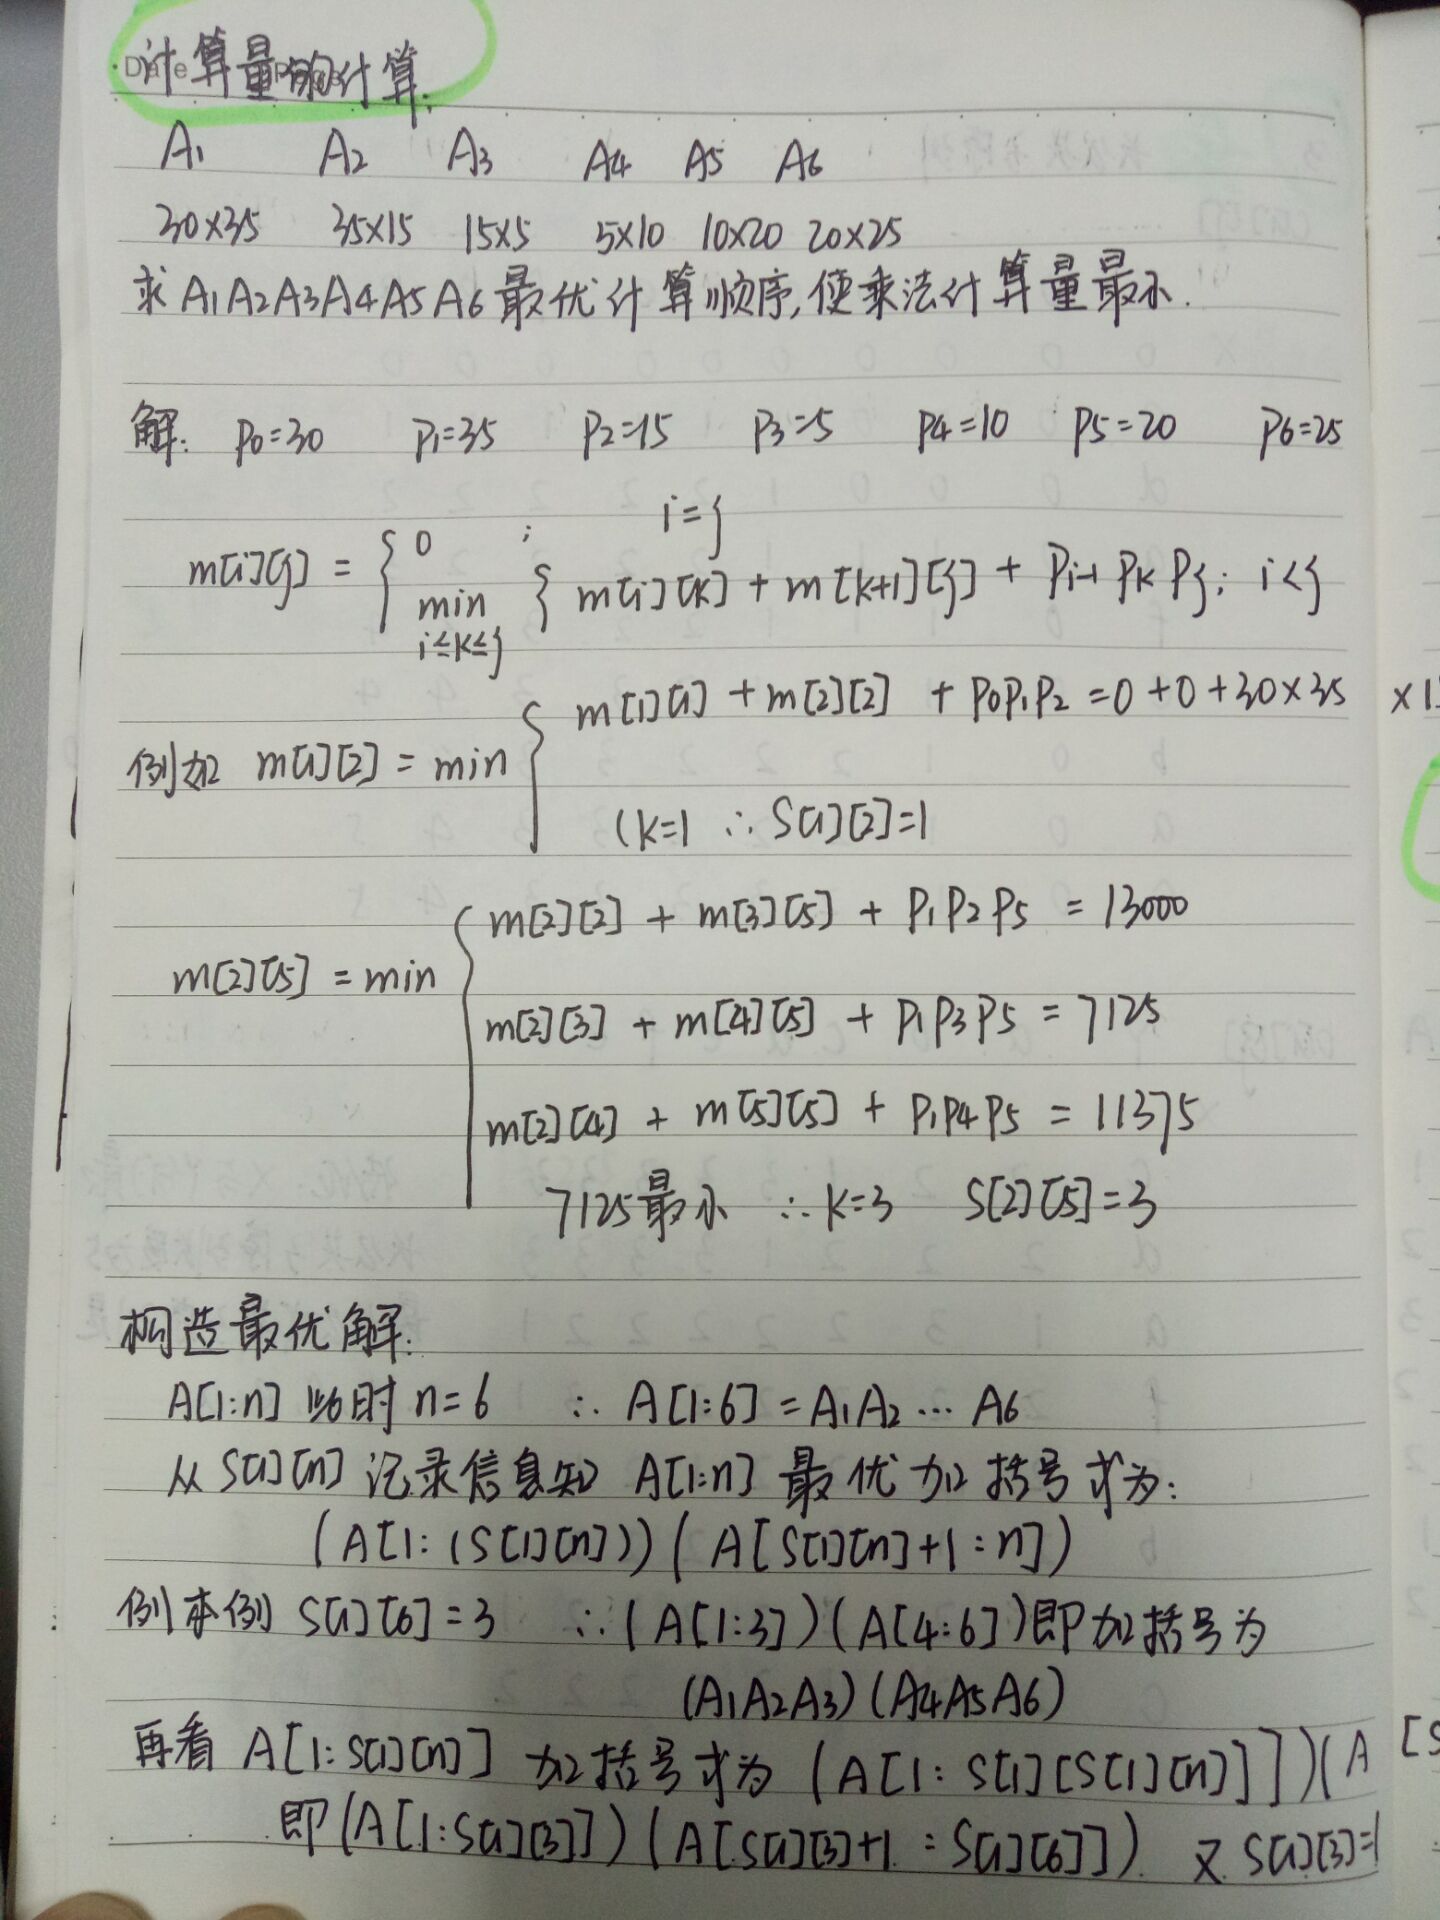 计算量的计算:
A1 A2 A3 A4 A5 A6
30×35 35×15 15×5 5×10 10×20 20×25
求A1A2A3A4A5A6最优计算顺序,使乘法计算量最小.
解: P0=30 P1=35 P2=15 P3=5 P4=10 P5=20 P6=25
m[i][j] = { 0 ; i=j
min i≤k≤j { m[i][k] + m[k+1][j] + Pi-1 Pk Pj; i<j
例如 m[1][2] = min { m[1][1] + m[2][2] + P0P1P2 = 0+0+30×35 ×1
(k=1 ∴ S[1][2]=1
m[2][5] = min { m[2][2] + m[3][5] + P1P2P5 = 13000
m[2][3] + m[4][5] + P1P3P5 = 7125
m[2][4] + m[5][5] + P1P4P5 = 11375
7125最小 ∴k=3 S[2][5]=3
构造最优解:
A[1:n] 此时n=6 ∴ A[1:6] = A1A2…A6
从S[1][n]记录信息知 A[1:n] 最优加括号式为:
(A[1:(S[1][n]))(A[S[1][n]+1:n])
例本例 S[1][6]=3 ∴(A[1:3])(A[4:6])即加括号为
(A1A2A3)(A4A5A6)
再看 A[1:S[1][n]] 加括号式为 (A[1:S[1][S[1][n]]])(A [S
即(A[1:S[1][3]])(A[S[1][3]+1:S[1][6]]) 又S[1][3]=1